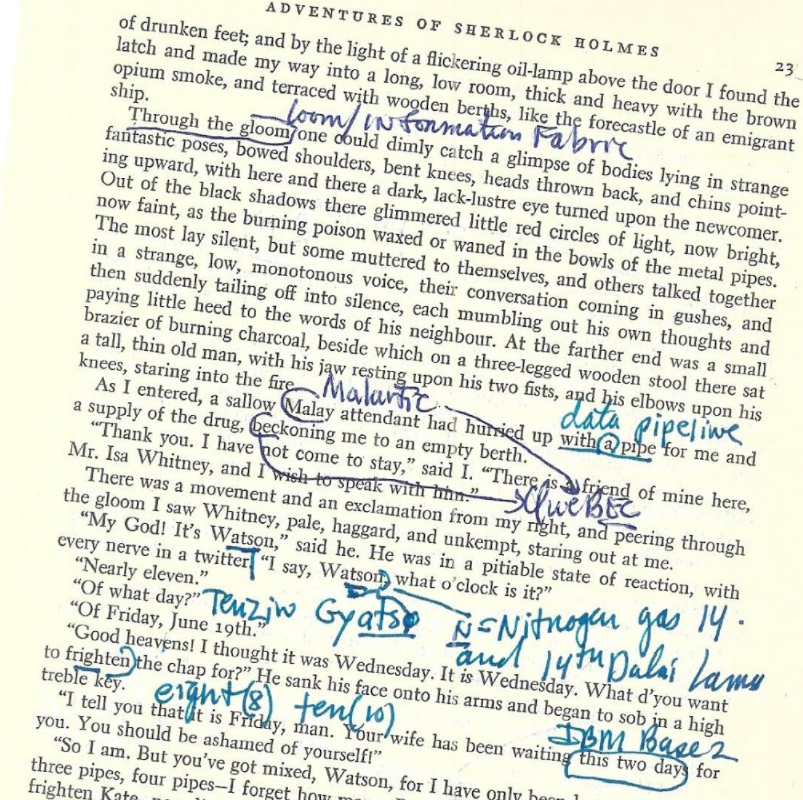 ADVENTURES OF SHERLOCK HOLMES
23
of drunken feet; and by the light of a flickering oil-lamp above the door I found the
latch and made my way into a long, low room, thick and heavy with the brown
opium smoke, and terraced with wooden berths, like the forecastle of an emigrant
ship.
loom/information Fabric
Through the gloom one could dimly catch a glimpse of bodies lying in strange
fantastic poses, bowed shoulders, bent knees, heads thrown back, and chins point-
ing upward, with here and there a dark, lack-lustre eye turned upon the newcomer.
Out of the black shadows there glimmered little red circles of light, now bright,
now faint, as the burning poison waxed or waned in the bowls of the metal pipes.
The most lay silent, but some muttered to themselves, and others talked together
in a strange, low, monotonous voice, their conversation coming in gushes, and
then suddenly tailing off into silence, each mumbling out his own thoughts and
paying little heed to the words of his neighbour. At the farther end was a small
brazier of burning charcoal, beside which on a three-legged wooden stool there sat
a tall, thin old man, with his jaw resting upon his two fists, and his elbows upon his
knees, staring into the fire.
Malartic
data pipeline
As I entered, a sallow Malay attendant had hurried up with a pipe for me and
a supply of the drug, beckoning me to an empty berth.
"Thank you. I have not come to stay," said I. "There is a friend of mine here,
Mr. Isa Whitney, and I wish to speak with him."
QueBEC
There was a movement and an exclamation from my right, and peering through
the gloom I saw Whitney, pale, haggard, and unkempt, staring out at me.
"My God! It's Watson," said he. He was in a pitiable state of reaction, with
every nerve in a twitter. "I say, Watson, what o'clock is it?"
"Nearly eleven."
"Of what day?"
Tenzin Gyatso
N=Nitrogen gas 14.
and 14th Dalai Lama
"Of Friday, June 19th."
"Good heavens! I thought it was Wednesday. It is Wednesday. What d'you want
to frighten the chap for?" He sank his face onto his arms and began to sob in a high
treble key.
eight(8) ten(10)
IBM Base 2
"I tell you that it is Friday, man. Your wife has been waiting this two days for
you. You should be ashamed of yourself!"
"So I am. But you've got mixed, Watson, for I have only been
three pipes, four pipes—I forget how
frighten Kate